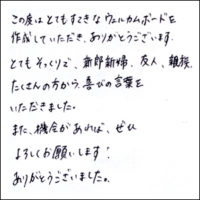 この度はとてもすてきなウェルカムボードを
作成していただき、ありがとうございます。
とてもそっくりで、新郎新婦、友人、親族、
たくさんの方から、喜びの言葉を
いただきました。
また、機会があれば、ぜひ
よろしくお願いします!
ありがとうございました。